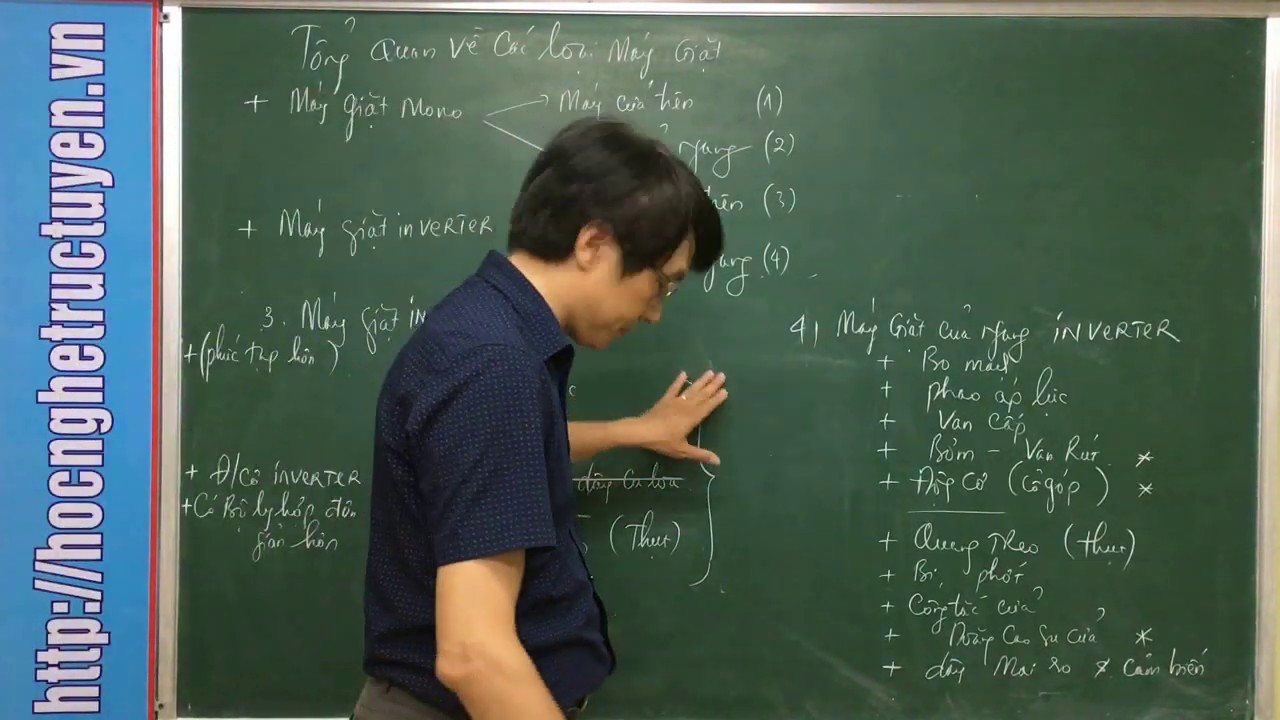 http://hocnghetructuyen.vn
Tổng Quan Về Các loại Máy Giặt
+ Máy giặt Mono
Máy cửa trên (1)
ngang (2)
+ Máy giặt inVERTER
trên (3)
ngang (4)
3. Máy giặt in
+ (phức tạp hơn)
+ Đ/Cơ inVERTER
+ Có Bộ ly hợp đơn
giản hơn
dây Cu loa
(Thụt)
4) Máy Giặt cửa ngang inVERTER
+ Bo mạch
+ phao áp lực
+ Van Cấp
+ Bơm - Van Rút *
+ Động Cơ (Cổ góp) *
+ Quang Treo (thụt)
+ Bi, phớt
+ Công tắc cửa
+ Doăng Cao Su cửa *
+ dây Mai so * cảm biến